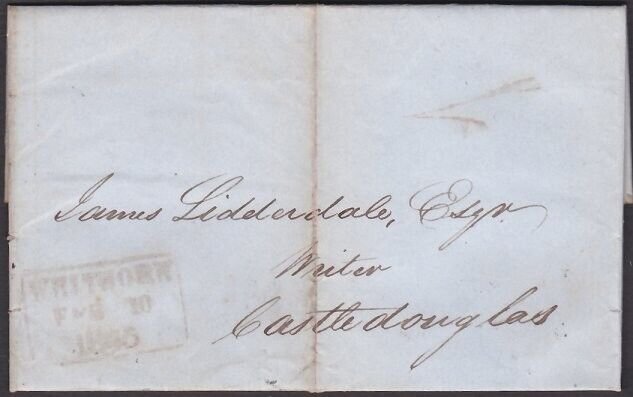 James Lidderdale, Esqr
Writer
Castledouglas
WHITHORN
FEB 10